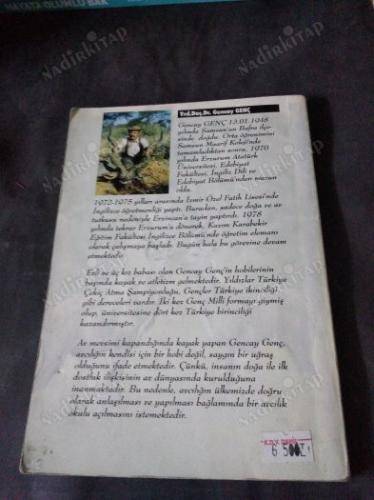 HAYATA OLUMLU BAK
Yrd.Doç.Dr. Gencay GENÇ
Gencay GENÇ 13.01.1948
yılında Samsun'un Bafra ilçe-
sinde doğdu. Orta öğrenimini
Samsun Maarif Koleji'nde
tamamladıktan sonra, 1970
yılında Erzurum Atatürk
Üniversitesi, Edebiyat
Fakültesi, İngiliz Dili ve
Edebiyat Bölümü'nden mezun
oldu.
1972-1975 yılları arasında İzmir Özel Fatih Lisesi'nde
İngilizce öğretmenliği yaptı. Buradan, sadece doğa ve av
tutkusu nedeniyle Erzincan'a tayin yaptırdı. 1978
yılında tekrar Erzurum'a dönerek, Kazım Karabekir
Eğitim Fakültesi, İngilizce Bölümü'nde öğretim elemanı
olarak çalışmaya başladı. Bugün hala bu görevine devam
etmektedir.
Evli ve üç kız babası olan Gencay Genç'in hobilerinin
başında kayak ve atletizm gelmektedir. Yıldızlar Türkiye
Çekiç Atma Şampiyonluğu, Gençler Türkiye ikinciliği
gibi dereceleri vardır. İki kez Genç Milli formayı giymiş
olup, üniversitesine dört kez Türkiye birinciliği
kazandırmıştır.
Av mevsimi kapandığında kayak yapan Gencay Genç,
avcılığın kendisi için bir hobi değil, saygın bir uğraş
olduğunu ifade etmektedir. Çünkü, insanın doğa ile ilk
dostluk ilişkisinin av dünyasında kurulduğuna
inanmaktadır. Bu nedenle, avcılığın ülkemizde doğru
olarak anlaşılması ve yapılması bağlamında bir avcılık
okulu açılmasını istemektedir.
NADİRKİTAP